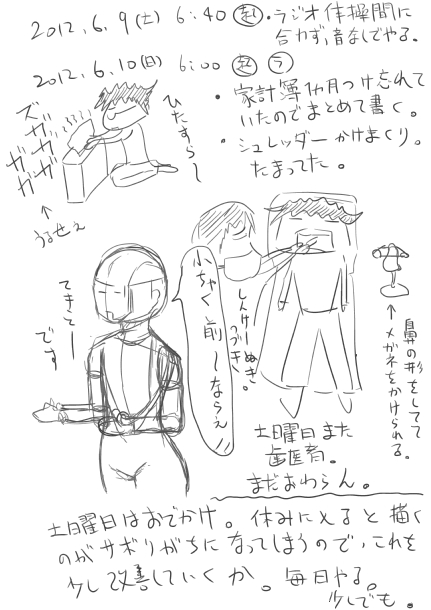 2012.6.9(土) 6:40 起・ラジオ体操間に
合わず、音なしでやる。
2012.6.10(日) 6:00 起 ラ
・家計簿1ヵ月つけ忘れて
いたのでまとめて書く。
・シュレッダーかけまくり。
たまってた。
ひたすらー
ズガガガガガ
↑
うるせぇ
小ちゃく前へならえ!!
しんけーぬき。
つづき
鼻の形をしてて
メガネをかけられる。
てきとー
です
土曜日また
歯医者。
まだおわらん。
土日曜日はおでかけ。休みに入ると描く
のがサボりがちになってしまうので、これを
少し改善していくか。毎日やる。
少しでも。